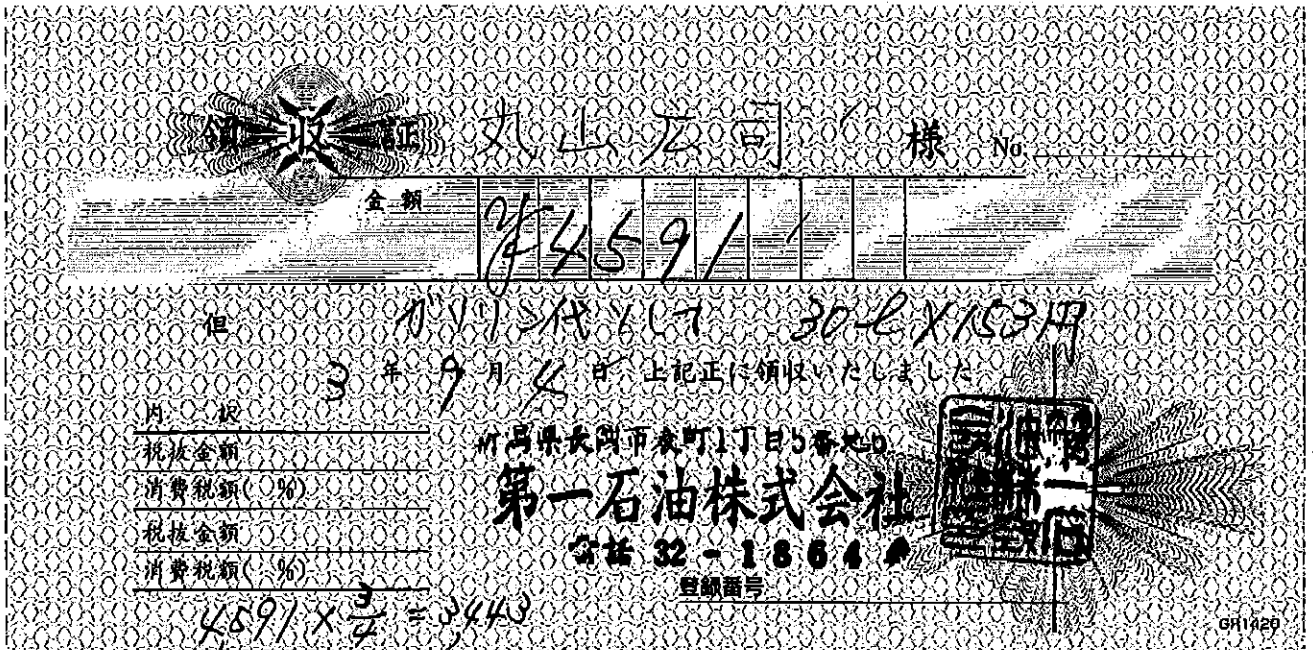 領収証 丸山広司 様 No.
金額 ¥4591
但 ガソリン代として 30ℓ×153円
3年 9月 4日 上記正に領収いたしました
内訳
税抜金額
消費税額( %)
税抜金額
消費税額( %)
県長岡市 町1丁目5番地
第一石油株式会社
電話 32-1864
登録番号
4591×3/4=3,443
GR1420